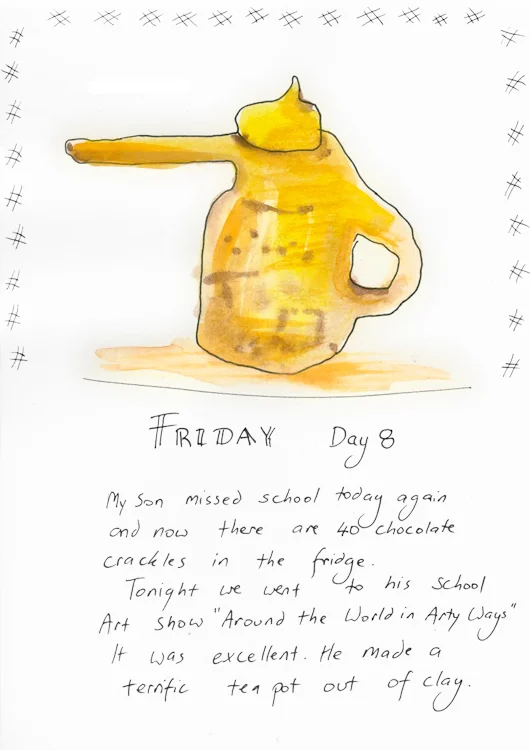 FRIDAY Day 8
My Son missed school today again
and now there are 40 chocolate
crackles in the fridge.
Tonight we went to his school
Art show "Around the World in Arty Ways"
It was excellent. He made a
terrific tea pot out of clay.